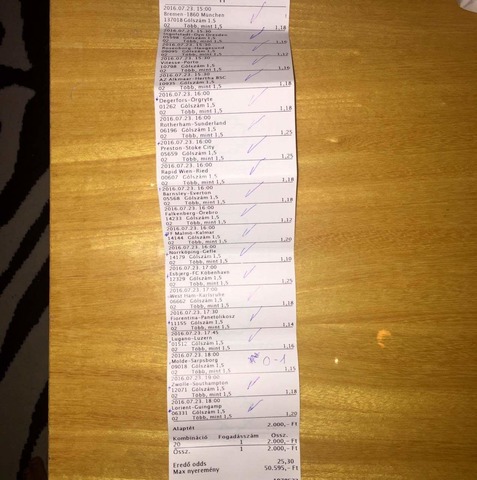 2016.07.23. 15:00
Bremen-1860 München
13701B Gólszám 1,5
02 Több, mint 1,5 1,18
2016.07.23. 15:30
Gólszám 1,5
02 Több, mint 1,5
2016.07.23. 15:30
Rosenborg-Haugesund
Gólszám 1,5
02 Több, mint 1,5 1,12
2016.07.23. 15:30
Vitesse-Porto
10798 Gólszám 1,5
02 Több, mint 1,5 1,16
2016.07.23. 15:30
AZ Alkmaar-Hertha BSC
10835 Gólszám 1,5
02 Több, mint 1,5 1,18
2016.07.23. 16:00
Degerfors-Örgryte
01262 Gólszám 1,5
02 Több, mint 1,5 1,18
2016.07.23. 16:00
Rotherham-Sunderland
06196 Gólszám 1,5
02 Több, mint 1,5 1,25
2016.07.23. 16:00
Preston-Stoke City
05659 Gólszám 1,5
02 Több, mint 1,5 1,25
2016.07.23. 16:00
Rapid Wien-Ried
00607 Gólszám 1,5
02 Több, mint 1,5 1,18
2016.07.23. 16:00
Barnsley-Everton
05568 Gólszám 1,5
02 Több, mint 1,5 1,18
2016.07.23. 16:00
Falkenberg-Örebro
14233 Gólszám 1,5
02 Több, mint 1,5 1,17
2016.07.23. 16:00
FF Malmö-Kalmar
14144 Gólszám 1,5
02 Több, mint 1,5 1,20
2016.07.23. 16:00
Norrköping-Gefle
14179 Gólszám 1,5
02 Több, mint 1,5 1,19
2016.07.23. 17:00
Esbjerg-FC Köbenhavn
12329 Gólszám 1,5
02 Több, mint 1,5 1,25
2016.07.23. 17:00
West Ham-Karlsruhe
06662 Gólszám 1,5
02 Több, mint 1,5 1,18
2016.07.23. 17:30
Fiorentina-Panetolikosz
11155 Gólszám 1,5
02 Több, mint 1,5 1,14
2016.07.23. 17:45
Lugano-Luzern
01512 Gólszám 1,5
02 Több, mint 1,5 1,16
2016.07.23. 18:00
Molde-Sarpsborg 0-1
09018 Gólszám 1,5
02 Több, mint 1,5 1,15
Zwolle-Southampton
12071 Gólszám 1,5
02 Több, mint 1,5 1,18
2016.07.23. 18:00
Lorient-Guingamp
06331 Gólszám 1,5
02 Több, mint 1,5 1,29
Alaptét 2.000,- Ft
Kombináció Fogadásszám Össz.
20 1 2.000,- Ft
Össz. 1 2.000,- Ft
Eredő odds 25,30
Max nyeremény 50.595,- Ft